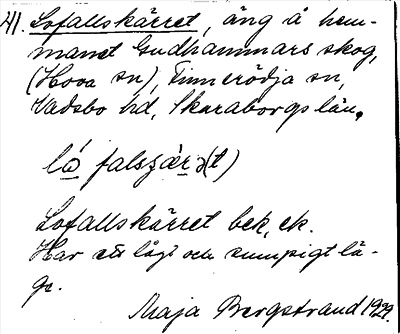 41. Lofallskärret, äng å hem-
manet Gudhammars skog,
(Hova sn), Finnerödja sn,
Vadsbo hd, Skaraborgs län.
Lofallskärret bek, ek.
Har ett lågt och sumpigt lä-
ge.
Maja Bergstrand 1929.